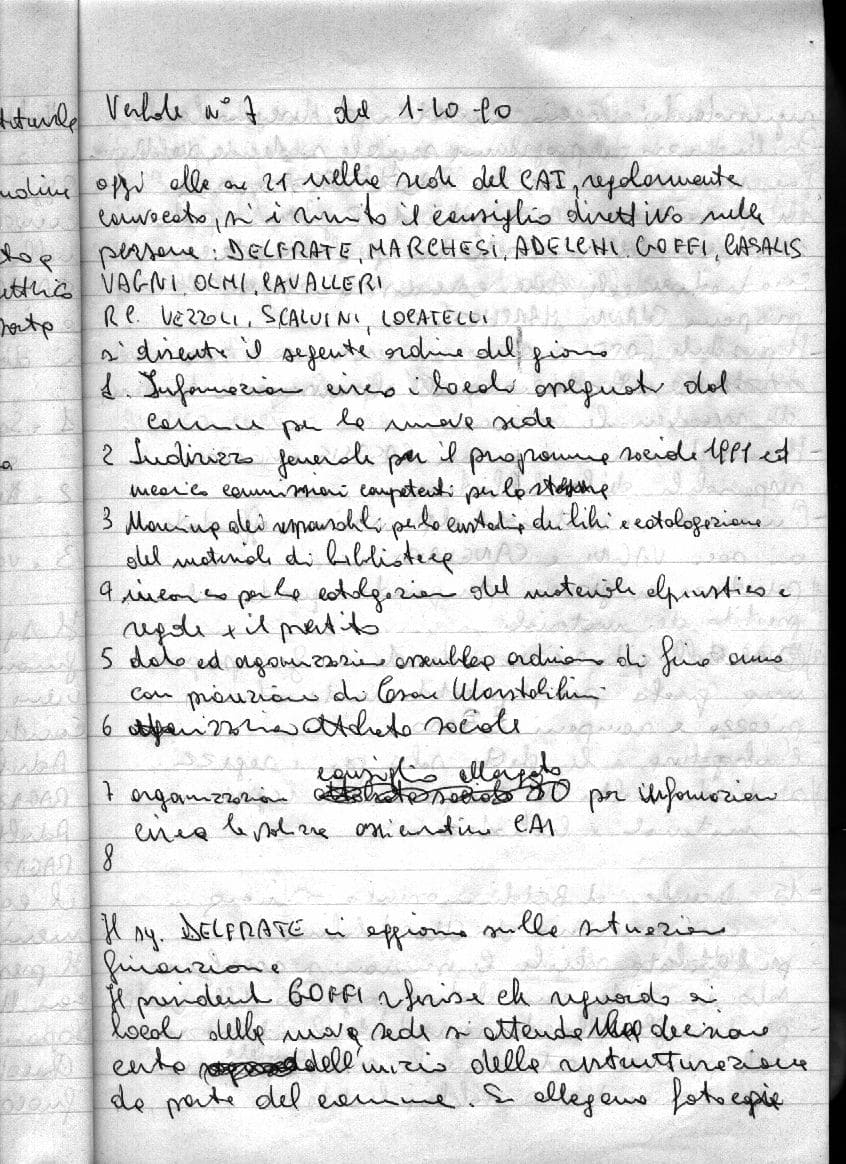 Verbale n° 7 del 1-10-90
oggi alle ore 21 nella sede del CAI, regolarmente
convocato, si è riunito il consiglio direttivo nelle
persone: DELFRATE, MARCHESI, ADELCHI, GOFFI, CASALIS
VAGNI, OLMI, CAVALLERI
R.C. VEZZOLI, SCALVINI, LOCATELLI
si discute il seguente ordine del giorno
1. Informazioni circa i locali assegnati dal
comune per la nuova sede
2 Indirizzo generale per il programma sociale 1991 ed
incarico commissioni competenti per lo
3 Nomina dei responsabili per la custodia dei libri e catalogazione
del materiale di biblioteca
4 incarico per la catalogazione del materiale alpinistico e
regole x il prestito
5 data ed organizzazione assemblea ordinaria di fine anno
con proiezione di
6 attività sociale
consiglio allargato
7 organizzazione per informazioni
circa le polizze assicurative CAI
8
Il sig. DELFRATE ci aggiorna sulla situazione
finanziaria
Il presidente GOFFI riferisce che riguardo ai
locali della nuova sede si attende decisione
certa dell'inizio della ristrutturazione
da parte del comune. Si allegano fotocopie